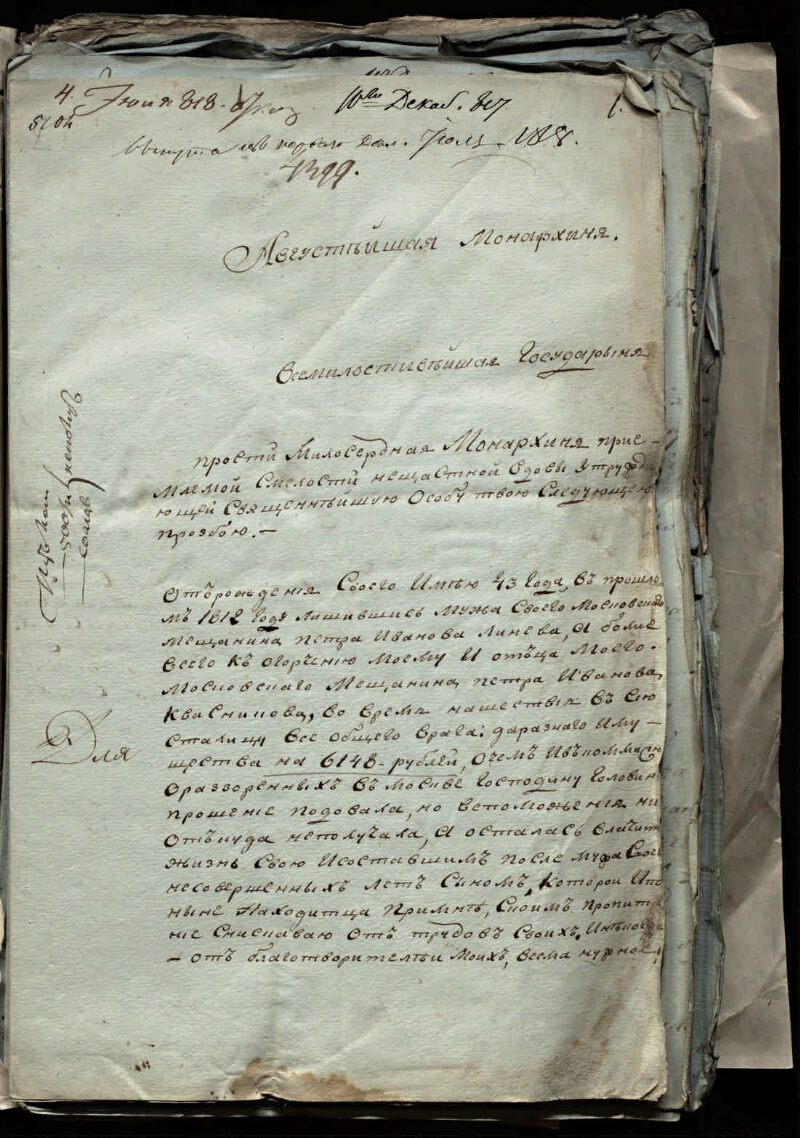 4. Июня 818
10го Декаб. 817
1.
1399.
Августѣйшая Монархиня.
Всемилостивѣйшая Государыня
прости Милосердная Монархиня прие-
млемой Смелости нещастной Вдовы Утружда
ющей Священнѣйшую Особу твою Следующею
прозбою. —
Отъ рождения Своего Имѣю 43 Года, въ прошло
мъ 1812 Годѣ Лишившись Мужа Своего Московскаго
Мещанина петра Иванова Линева, А более
Всего къ огорчению Моему И отъца Моего
Московскаго Мещанина петра Иванова
Квасникова, во Время нашествия въ Сию
Сталицу Все общего Врага: даразнаго Иму-
щества на 6148 рублей, Очемъ Ивъкоммисию
Оразоренныхъ въ Москве Господину Головину
прошение подавала, но Вспоможения ни
Отъкуда неполучала, А осталась Влачить
жизнь Свою Исоставшимъ после мужа Свое
несовершенныхъ летъ Сыномъ, Которой Ипо
ныне Находитца Примнѣ,Скоимъ пропита
ние Снискиваю Отъ трудовъ Своихъ,
- отъ благотворителѣй Моихъ, Весма нужное,
Для